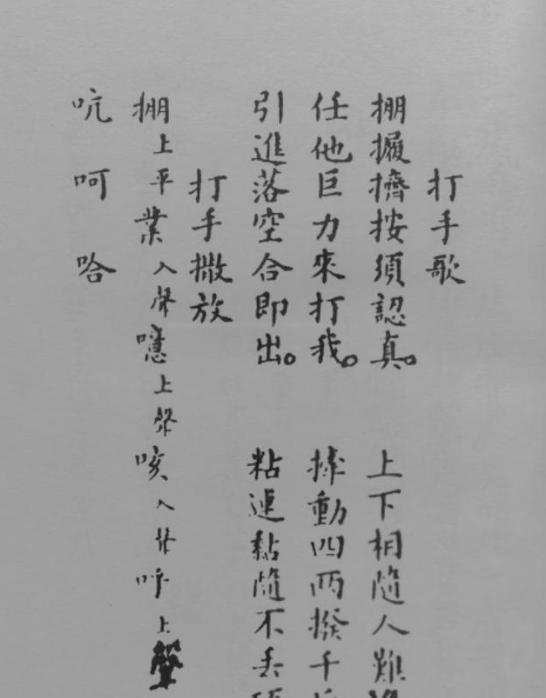 打手歌
掤擠按須認真。 上下相隨人難
任他巨力來打我。 捧動四兩撥千
引進落空合即出。 粘連黏隨不丟
打手撒放
掤上平業入聲噫上聲咳入聲呼上聲
吭 呵 哈